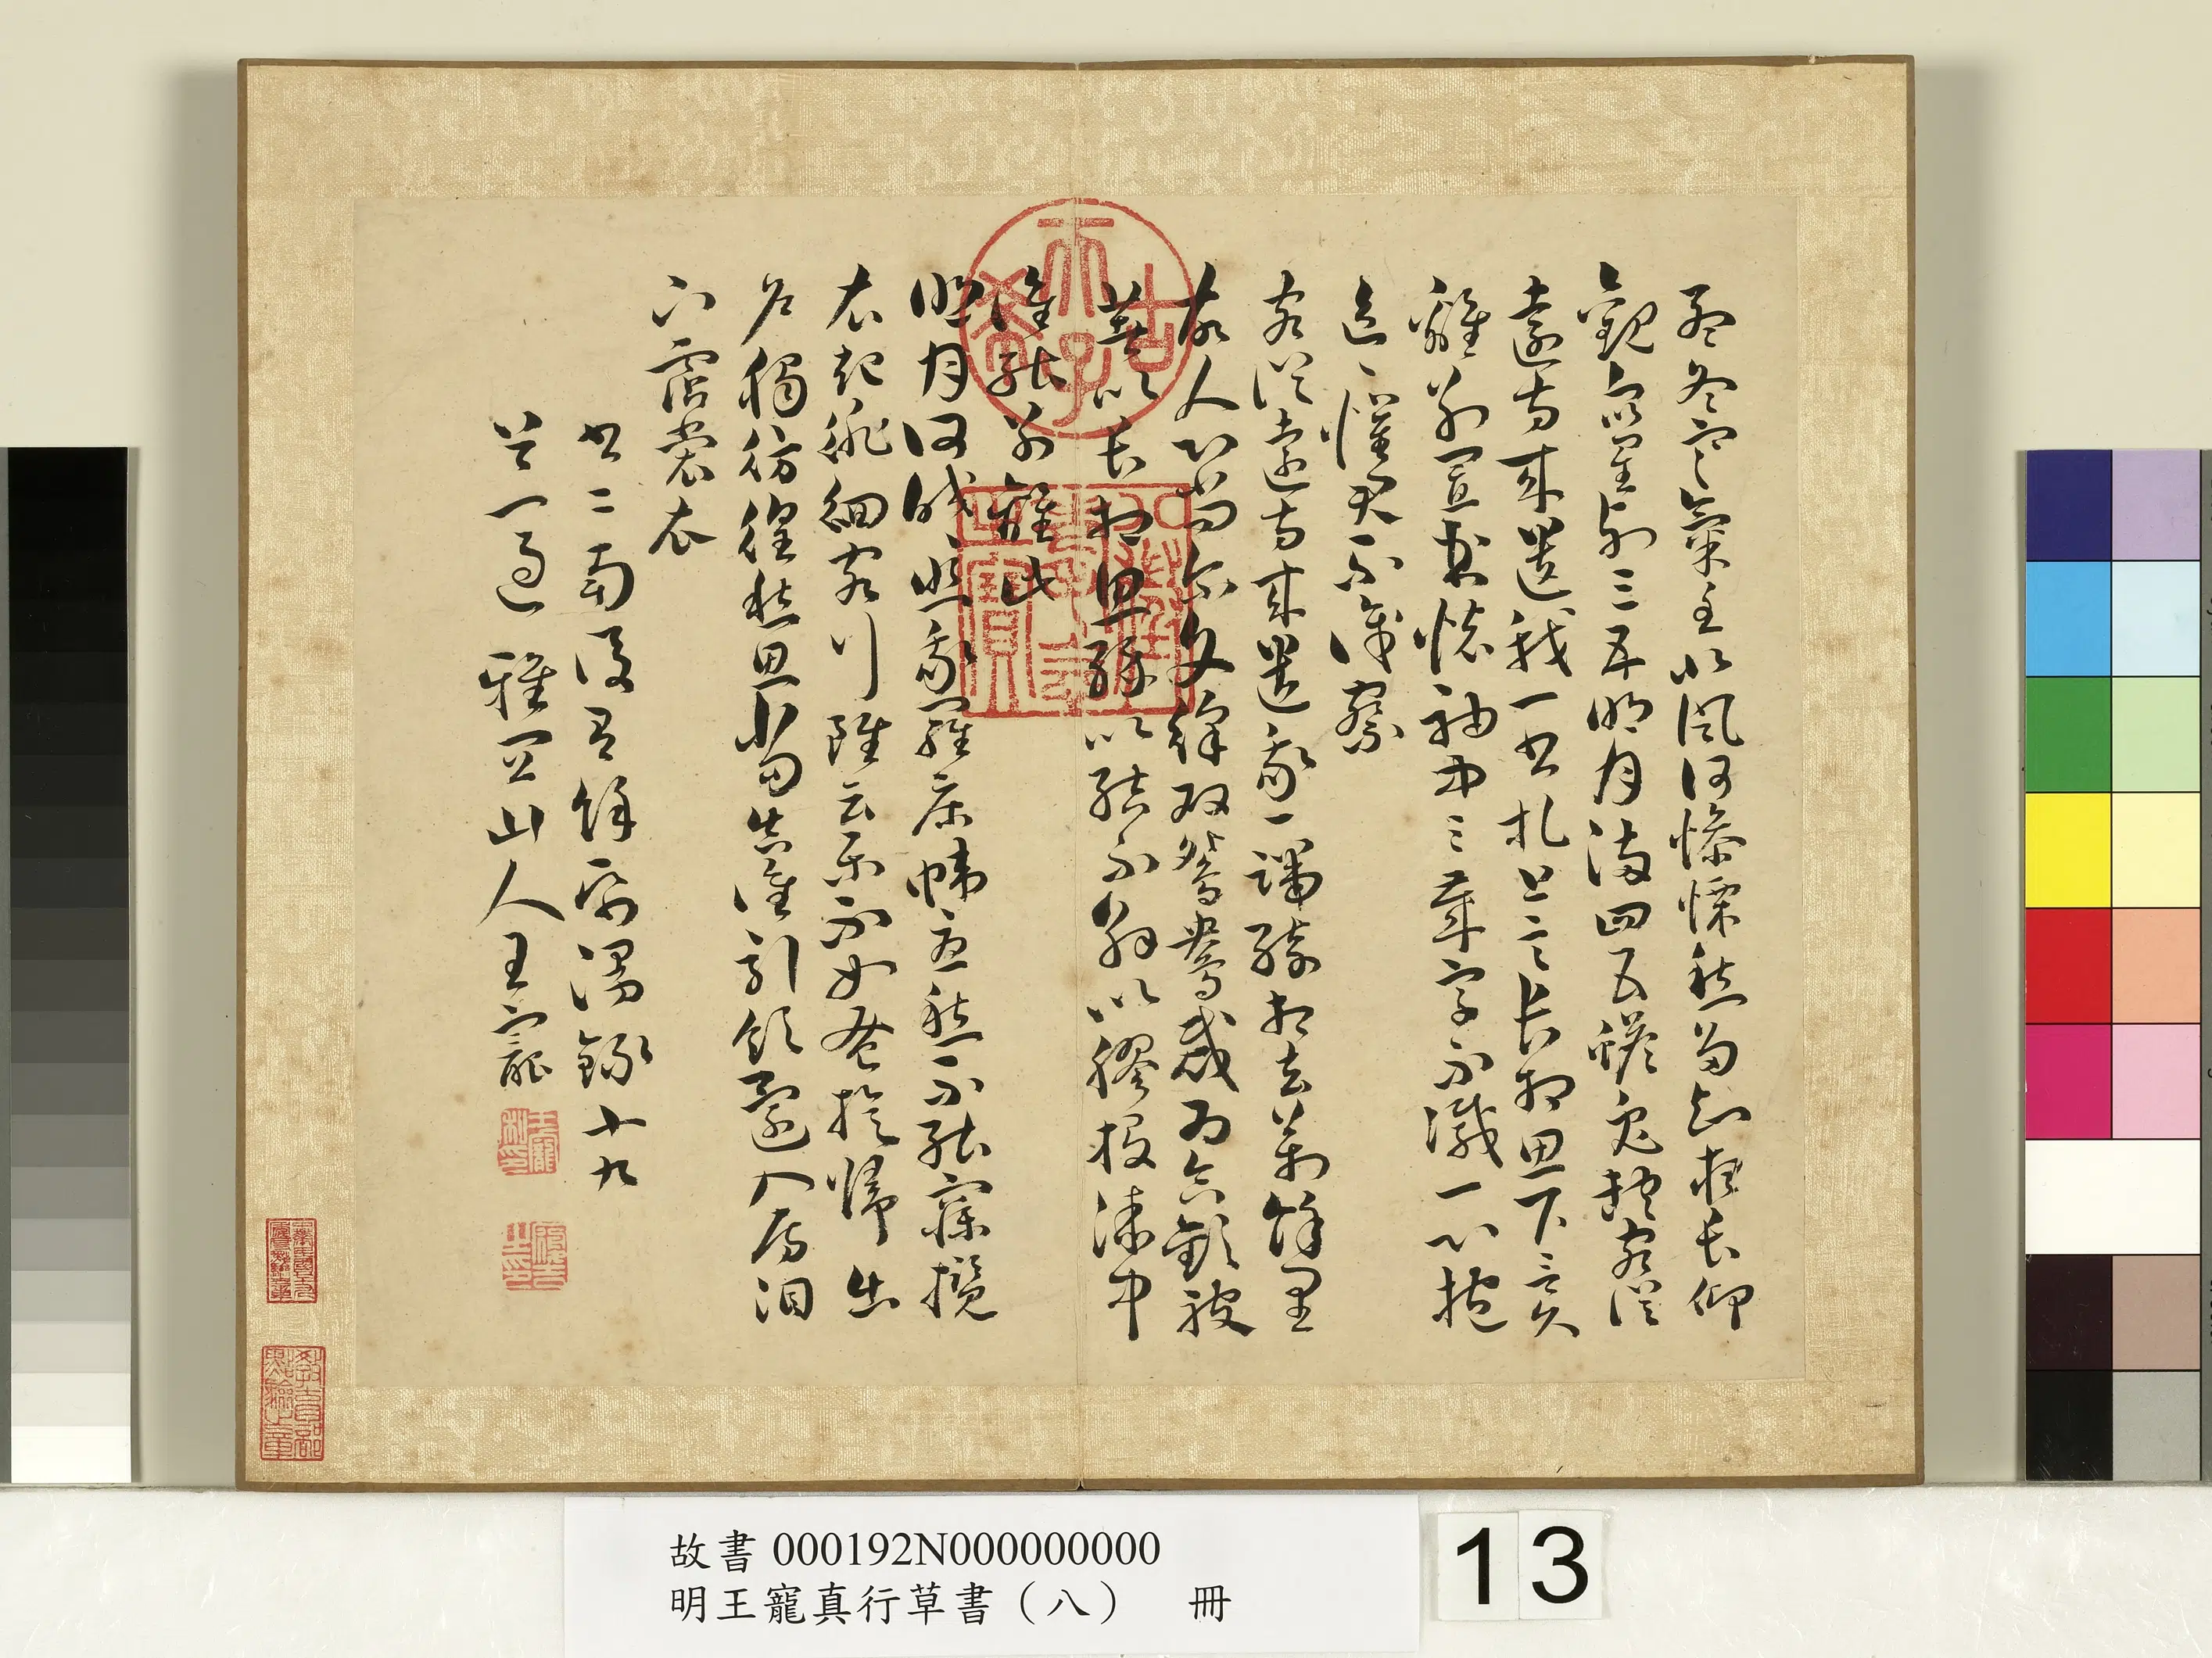 孟冬寒氣至北風何慘慄愁多知夜長仰
觀衆星列三五明月滿四五蟾兔缺客從
遠方來遺我一書札上言長相思下言久
離別置書懷袖中三歲字不滅一心抱
區〻懼君不識察
客從遠方來遺我一端綺相去萬餘里
故人心尚爾文綵双鴛鴦裁為合歡被
著以長相思緣以結不解以膠投漆中
誰能別離此
明月何皎〻照我羅床幃憂愁不能寐攬
衣起徘徊客行雖云樂不如蚤旋歸出
戶獨彷徨愁思當告誰引領還入房泪
下霑裳衣
書二南後有餘帋漫錄十九
首一過 雅宜山人王寵
王寵私印
古希天子
八徵耄念之寶
教育部點驗之章
故書000192N000000000
明王寵真行草書（八） 冊
13